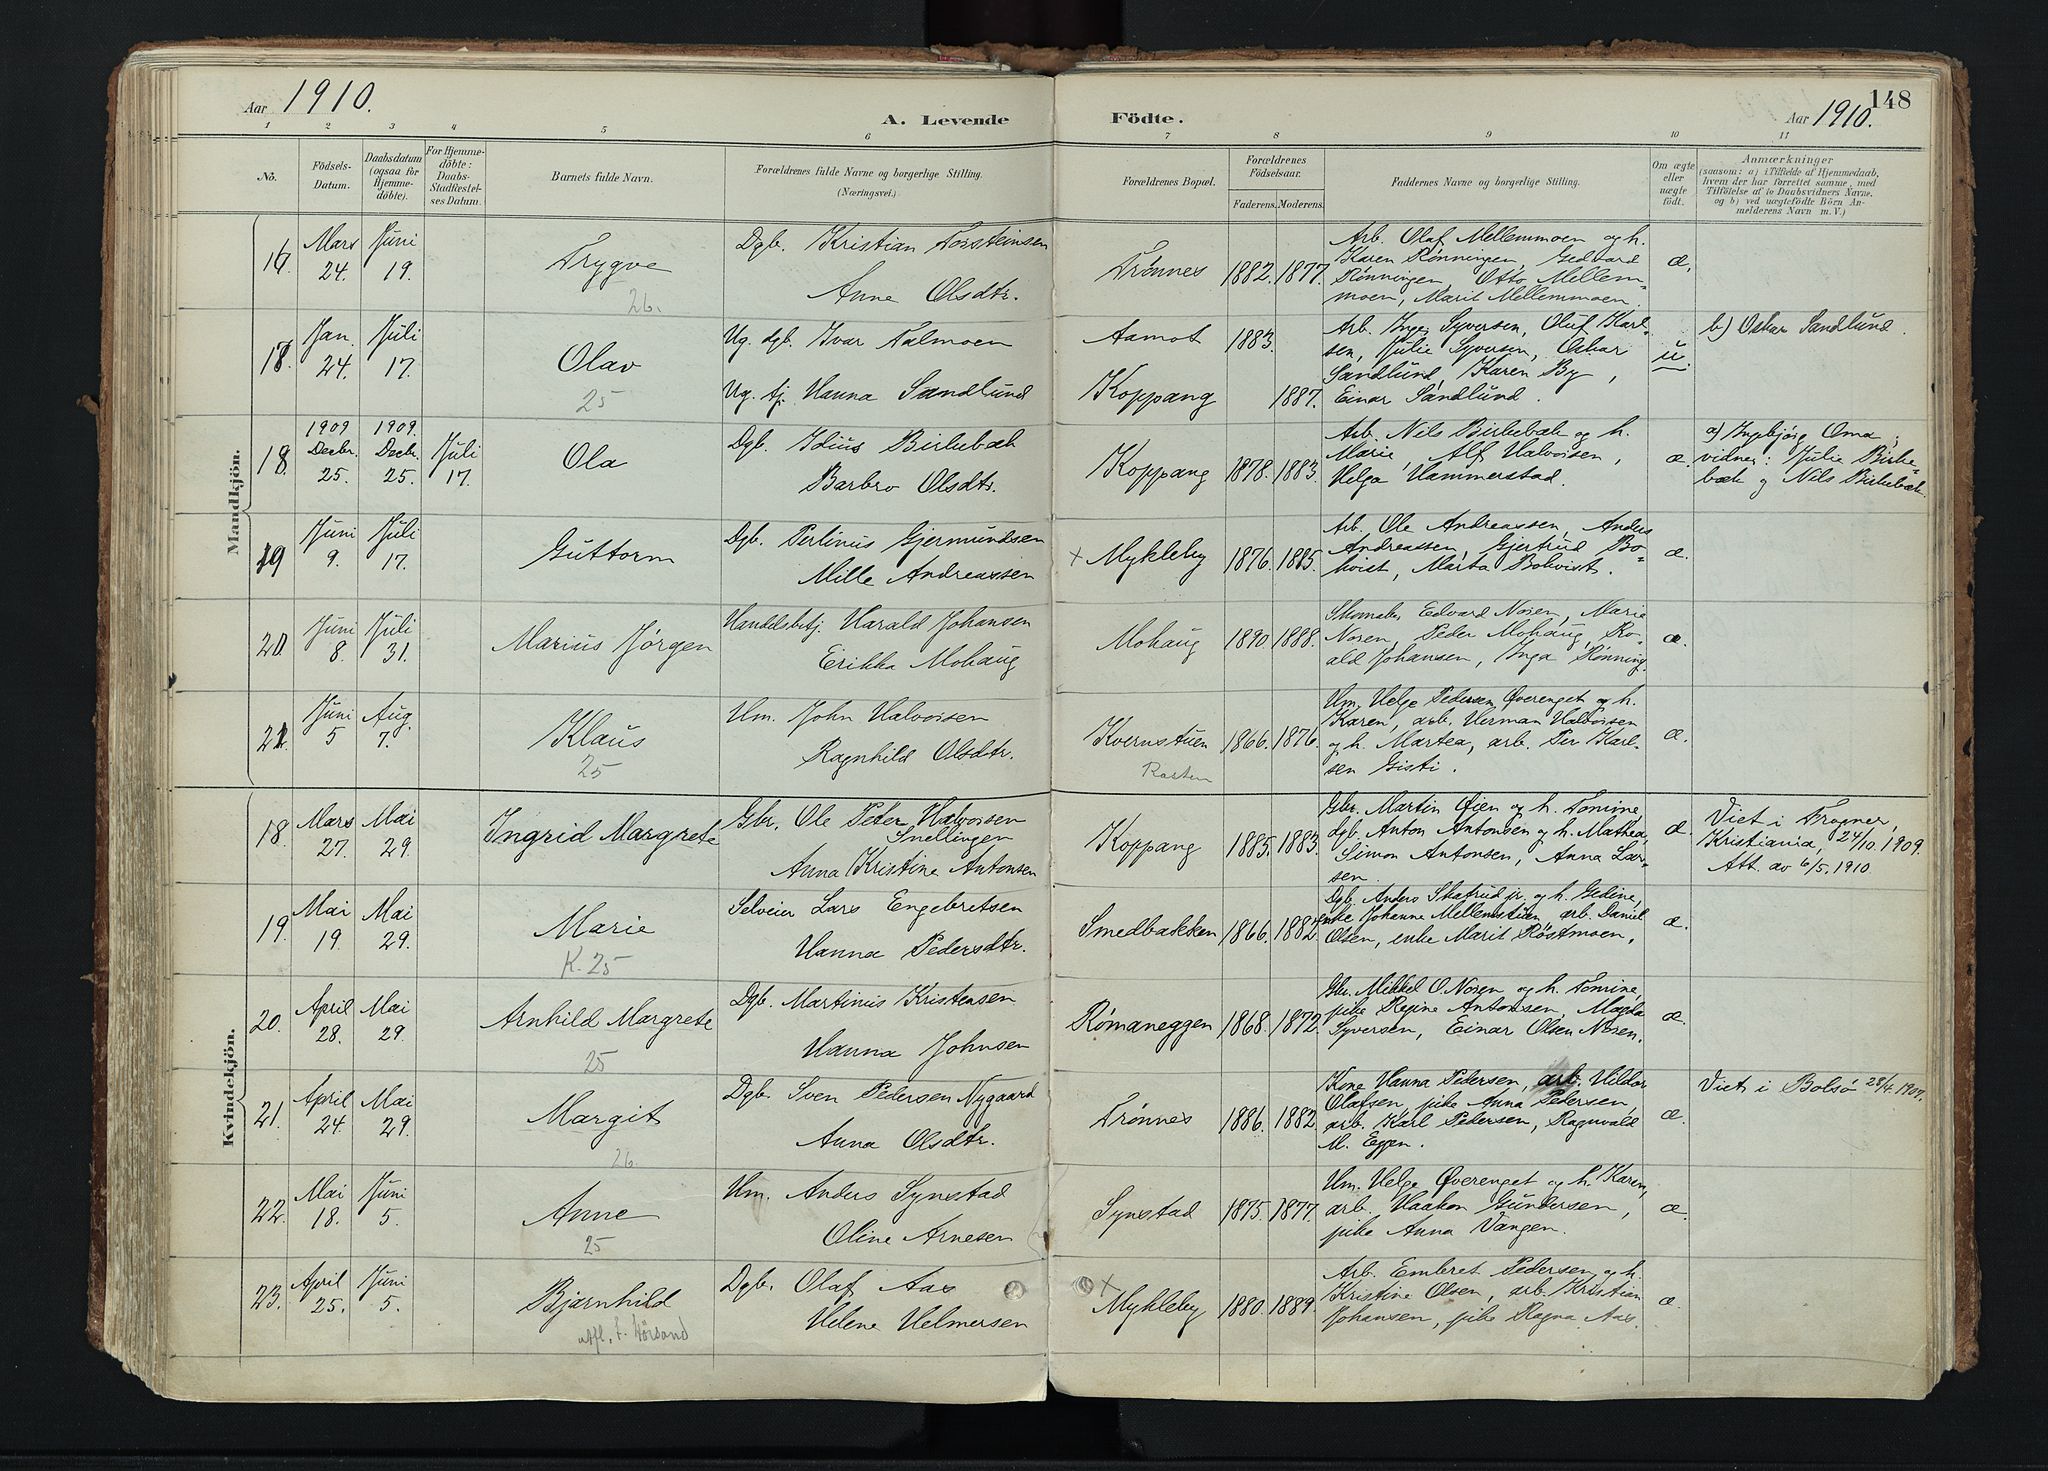 Aar 1910.
A. Levende
Födte.
Aar 1910.
148
1 2 3 4 5 6 7 8 9 10 11
No.
Födsels-
Datum.
Daabsdatum
(ogsaa for
Hjemme-
döbte).
For Hjemme-
döbte:
Daabs-
Stadfæstel-
ses Datum.
Barnets fulde Navn.
Forældrenes fulde Navne og borgerlige Stilling.
(Næringsvei.)
Forældrenes Bopæl.
Forældrenes
Födselsaar.
Faderens. Moderens.
Faddernes Navne og borgerlige Stilling.
Om ægte
eller
uægte
födt.
Anmærkninger
(saasom: a) i Tilfælde af Hjemmedaab,
hvem der har forrettet samme, med
Tilföielse af to Daabsvidners Navne.
og b) ved uægtefödte Börn An-
melderens Navn m. V.)
Mandkjön.
Mars
24.
Juni
19.
Trygve
26.
Dgb. Kristian Torsteinsen
Anne Olsdtr.
Trønnes
1882. 1877.
Arb. Olaf Mellemmoen og h.
Karen Rønningen, Gedvard
Rønningen, Otto Mellem-
moen, Marit Mellemmoen.
æ.
18.
Jan.
24.
Juli
17.
Olav
25
Ug. dgb. Ivar Talmoen
Ug. tj. Hanna Sandlund
Aamot
Koppang
1883.
1887.
Arb. Inger Syversen, Oluf Karl-
sen, Julie Syversen, Oskar
Sandlund, Karen By,
Einar Sandlund.
u.
b) Oskar Sandlund.
18.
1909
Decbr.
25.
1909.
Decbr.
25.
Juli
17.
Ola
Dgb. Idius Birkebæk
Barbro Olsdtr.
Koppang
1878. 1883.
Arb. Nils Birkebæk og h.
Marie, Alf Halvorsen,
Helga Hammerstad.
æ.
a) Ingebjørg Oma,
vidner: Julie Birke-
bæk og Nils Birkebæk.
19
Juni
9.
Juli
17.
Guttorm
Dgb. Perlinus Gjermundsen
Mille Andreassen
× Mykleby
1876. 1885.
Arb. Ole Andreassen, Anders
Andreassen, Gjertrud Bo-
kvist, Marta Bokvist.
æ.
20.
Juni
8.
Juli
31.
Marius Jørgen
Handelsbetj. Harald Johansen
Erikka Mohaug
Mohaug
1890. 1888.
Skomaker Edvard Noren, Marie
Noren, Peder Mohaug, Ro-
ald Johansen, Inga Rønning.
æ.
21.
Juni
5
Aug.
7.
Klaus
25
Um. John Halvorsen
Ragnhild Olsdtr.
Kvernstuen
Rasten
1866. 1876.
Um. Helge Pedersen Øverenget og h.
Karen, arb. Herman Halvorsen
og h. Martea, arb. Per Karl-
sen Gisti.
æ.
Kvindekjön.
18.
Mars
27.
Mai
29.
Ingrid Margrete
Gbr. Ole Peter Halvorsen
Snellingen
Anna Kristine Antonsen
Koppang
1885. 1883.
Gbr. Martin Øien og h. Tomine,
dgb. Anton Antonsen og h. Mathea,
Simon Antonsen, Anna Lar-
sen.
æ.
Viet i Frogner,
Kristiania, 24/10. 1909.
Att. av 6/5. 1910.
19.
Mai
19.
Mai
29.
Marie
K. 25
Selveier Lars Engebretsen
Hanna Pedersdtr.
Smedbakken
1866. 1882.
Dgb. Anders Skafrud jr. og h. Gedine,
enke Johanne Mellemstuen, arb. Daniel
Olsen, enke Marit Røstmoen.
æ.
20.
April
28.
Mai
29.
Arnhild Margrete
25
Dgb. Martinus Kristensen
Hanna Johnsen
Rømaneggen
1868. 1872.
Gbr. Mikkel O. Noren og h. Tomine,
pike Regine Antonsen, Magda
Syversen, Einar Olsen Noren.
æ.
21.
April
24.
Mai
29.
Margit
26.
Dgb. Sven Pedersen Nygaard
Anna Olsdtr.
Trønnes
1886. 1882.
Kone Hanna Pedersen, arb. Hildor
Olafsen, pike Anna Pedersen,
arb. Karl Pedersen, Ragnvald
M. Eggen.
æ.
Viet i Bolsø 28/4. 1909.
22.
Mai
18.
Juni
5.
Anne
25
Um. Anders Synstad
Oline Arnesen
Synstad
1875. 1877.
Um. Helge Øverenget og h. Karen,
arb. Haakon Gundersen,
pike Anna Vangen.
æ.
23.
April
25.
Juni
5.
Bjarnhild
utfl. t. Hörsand
Dgb. Olaf Aas
Helene Helmersen
× Mykleby
1880. 1889.
Arb. Embret Pedersen og h.
Kristine Olsen, arb. Kristian
Johansen, pike Ragna Aas.
æ.